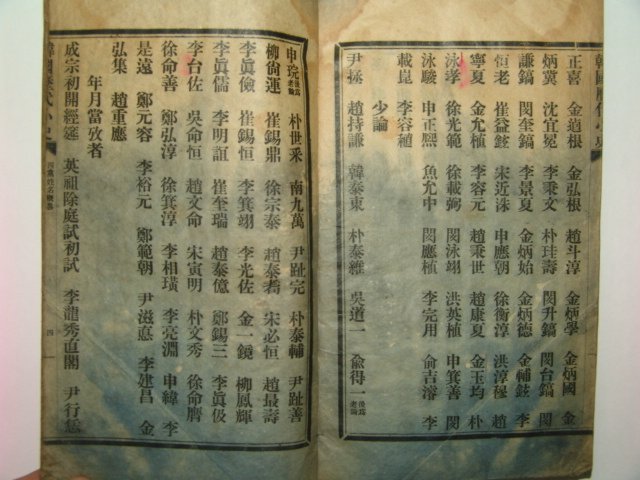 韓國歷代小史
正喜 金逌根 金弘根 趙斗淳 金炳學 金炳國 金
炳冀 沈宜冕 李秉文 朴珪壽 閔升鎬 閔台鎬 閔
謙鎬 閔奎鎬 李景夏 金炳始 金炳德 金輔鉉 李
恒老 崔益鉉 宋近洙 申應朝 徐衡淳 洪淳穆 趙
寧夏 金允植 李容元 趙秉世 趙康夏 金玉均 朴
泳孝 徐光範 徐載弼 閔泳翊 洪英植 申箕善 閔
泳駿 申正熙 魚允中 閔應植 李完用 俞吉濬 李
載崑 李容稙
少論
尹拯 趙持謙 韓泰東 朴泰維 吳道一 兪得一 後爲老論
申琓 後爲老論 朴世采 南九萬 尹趾完 朴泰輔 尹趾善
柳尙運 崔錫鼎 徐宗泰 趙泰耉 宋必恒 趙最壽
李眞儉 崔錫恒 李箕翊 李光佐 金一鏡 柳鳳輝
李眞儒 李明誼 崔奎瑞 趙泰億 鄭錫三 李眞伋
李台佐 吳命恒 趙文命 宋寅明 朴文秀 徐命膺
徐命善 鄭弘淳 徐箕淳 李相璜 李亮淵 申緯 李
是遠 鄭元容 李裕元 鄭範朝 尹滋悳 李建昌 金
弘集 趙重應
年月當攷者
成宗初開經筵 英祖除庭試初試 李龍秀直閣 尹行恁
韓國歷代小史 四黨姓名槪畧 四